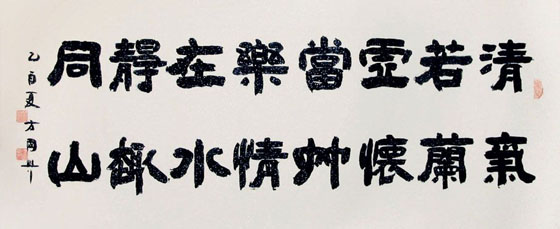 清氣
若蘭
虛懷
當竹
樂情
在水
靜趣
同山
乙酉夏方國